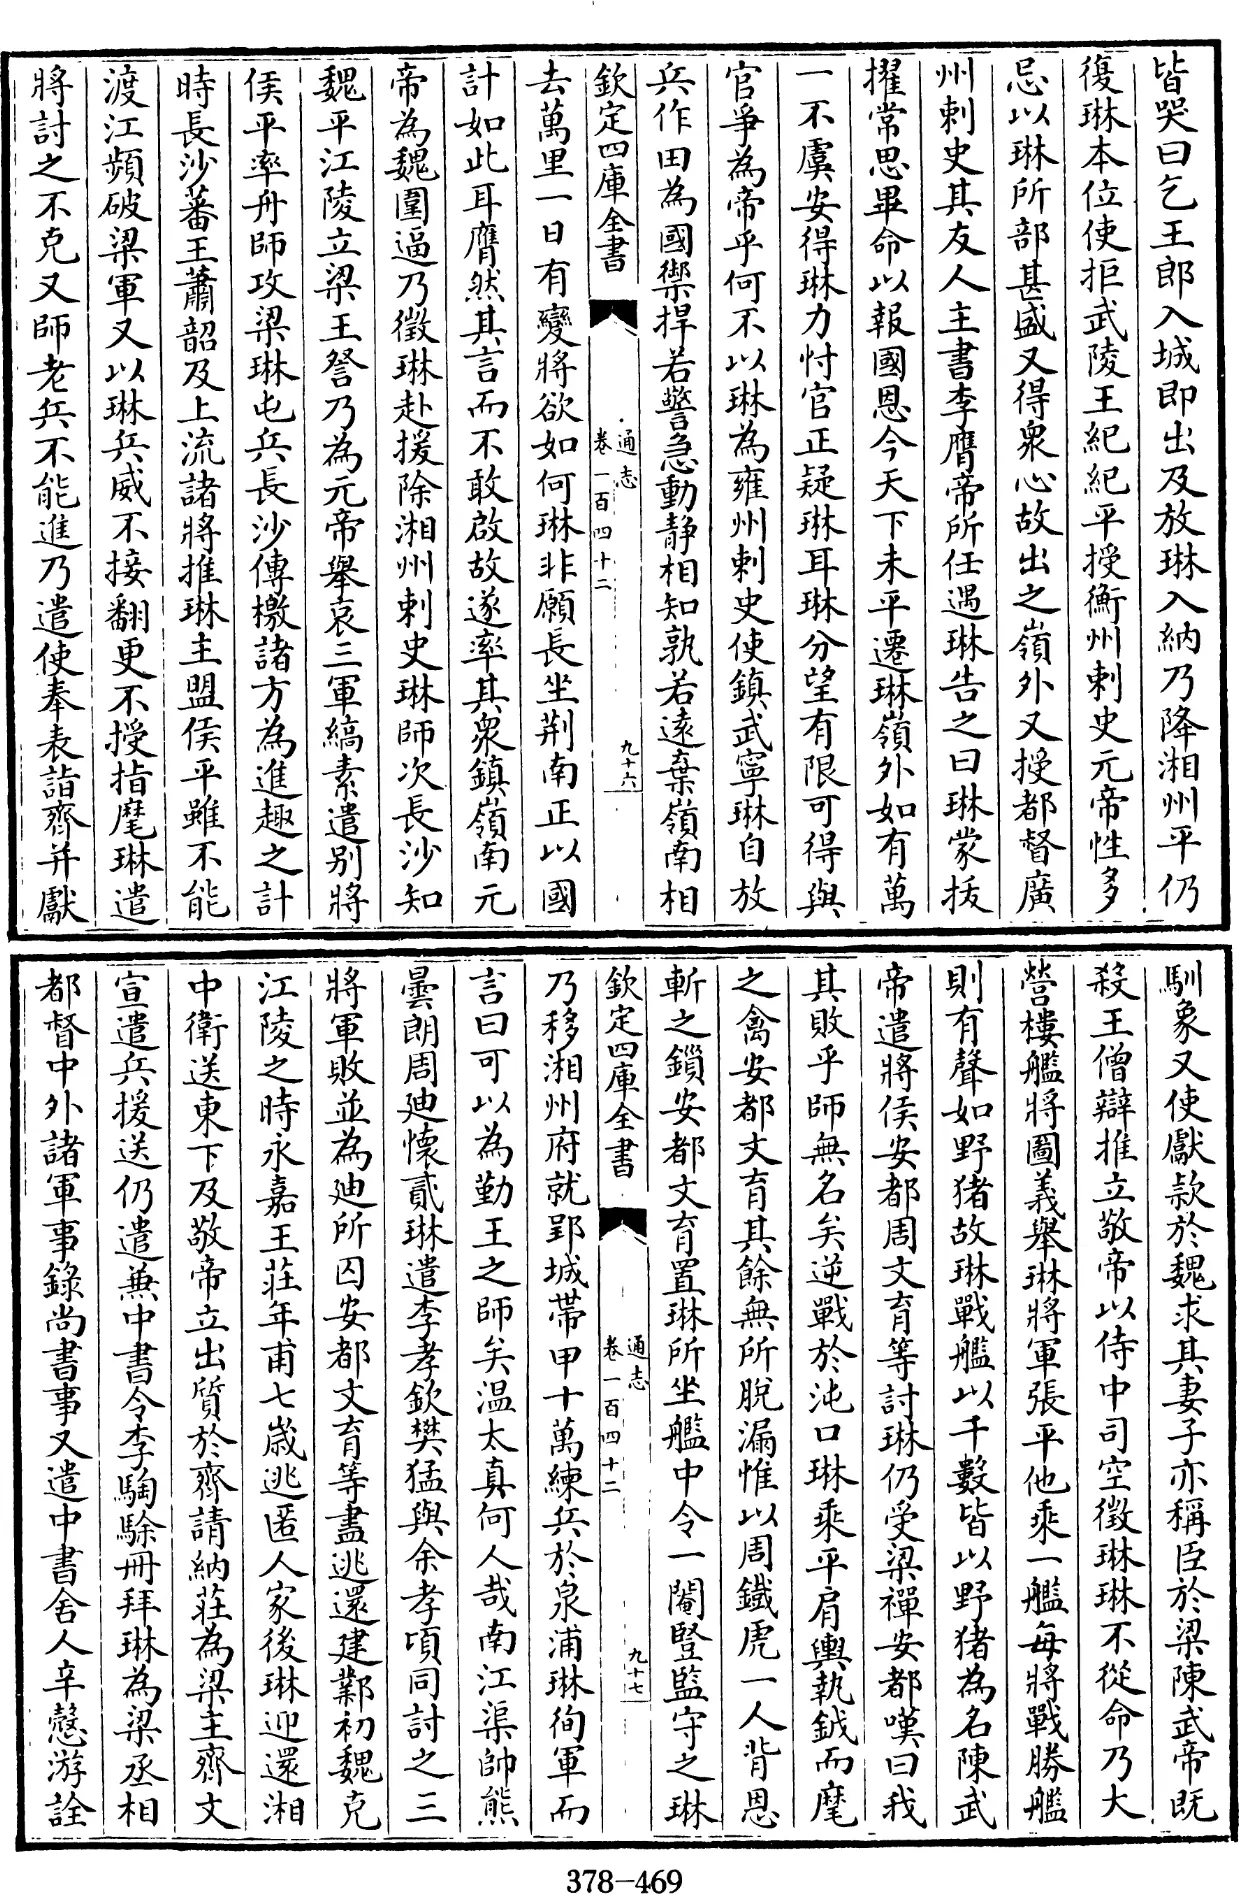 皆哭曰乞王郎入城即出及放琳入納乃降湘州平仍
復琳本位使拒武陵王紀紀平授衡州刺史元帝性多
忌以琳所部甚盛又得衆心故出之嶺外又授都督廣
州刺史其友人主書李膺帝所任遇琳告之曰琳蒙拔
擢常思畢命以報國恩今天下未平遷琳嶺外如有萬
一不虞安得琳力忖官正疑琳耳琳分望有限可得與
官爭為帝乎何不以琳為雍州刺史使鎮武寧琳自放
兵作田為國禦捍若警急動靜相知孰若遠棄嶺南相
欽定四庫全書
通志
卷一百四十二
九十六
去萬里一日有變將欲如何琳非願長坐荆南正以國
計如此耳膺然其言而不敢啟故遂率其衆鎮嶺南元
帝為魏圍逼乃徵琳赴援除湘州刺史琳師次長沙知
魏平江陵立梁王詧乃為元帝舉哀三軍縞素遣别將
侯平率舟師攻梁琳屯兵長沙傳檄諸方為進趣之計
時長沙蕃王蕭韶及上流諸將推琳主盟侯平雖不能
渡江頻破梁軍又以琳兵威不接翻更不授指麾琳遣
將討之不克又師老兵不能進乃遣使奉表詣齊并獻
馴象又使獻款於魏求其妻子亦稱臣於梁陳武帝既
殺王僧辯推立敬帝以侍中司空徵琳琳不從命乃大
營樓艦將圖義舉琳將軍張平他乘一艦每將戰勝艦
則有聲如野猪故琳戰艦以千數皆以野猪為名陳武
帝遣將侯安都周文育等討琳仍受梁禪安都嘆曰我
其敗乎師無名矣逆戰於沌口琳乘平肩輿執鉞而麾
之禽安都文育其餘無所脫漏惟以周鐵虎一人背恩
斬之鎖安都文育置琳所坐艦中令一閹豎監守之琳
欽定四庫全書
通志
卷一百四十二
九十七
乃移湘州府就郢城帶甲十萬練兵於泉浦琳徇軍而
言曰可以為勤王之師矣温太真何人哉南江渠帥熊
曇朗周廸懷貳琳遣李孝欽樊猛與余孝頃同討之三
將軍敗並為廸所囚安都文育等盡逃還建鄴初魏克
江陵之時永嘉王莊年甫七歲逃匿人家後琳迎還湘
中衛送東下及敬帝立出質於齊請納莊為梁主齊文
宣遣兵援送仍遣兼中書令李騊駼冊拜琳為梁丞相
都督中外諸軍事錄尚書事又遣中書舍人辛慤游詮
378-469